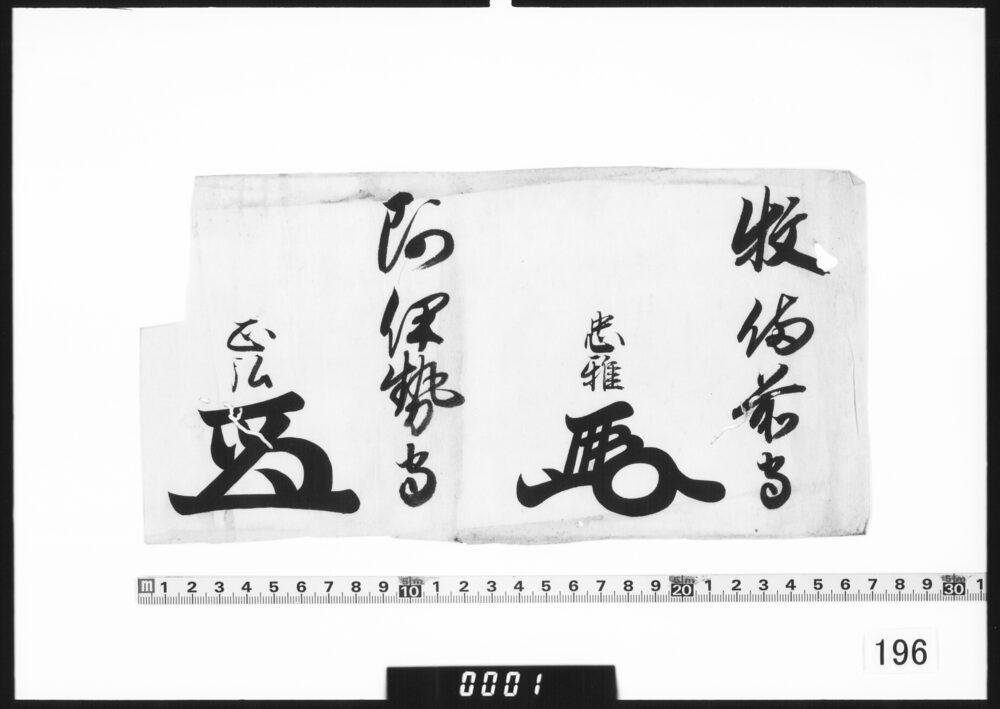 牧備前守
忠雅
阿伊勢守
正弘
m 1 2 3 4 5 6 7 8 9 10 1 2 3 4 5 6 7 8 9 20 1 2 3 4 5 6 7 8 9 30 1
196
0001